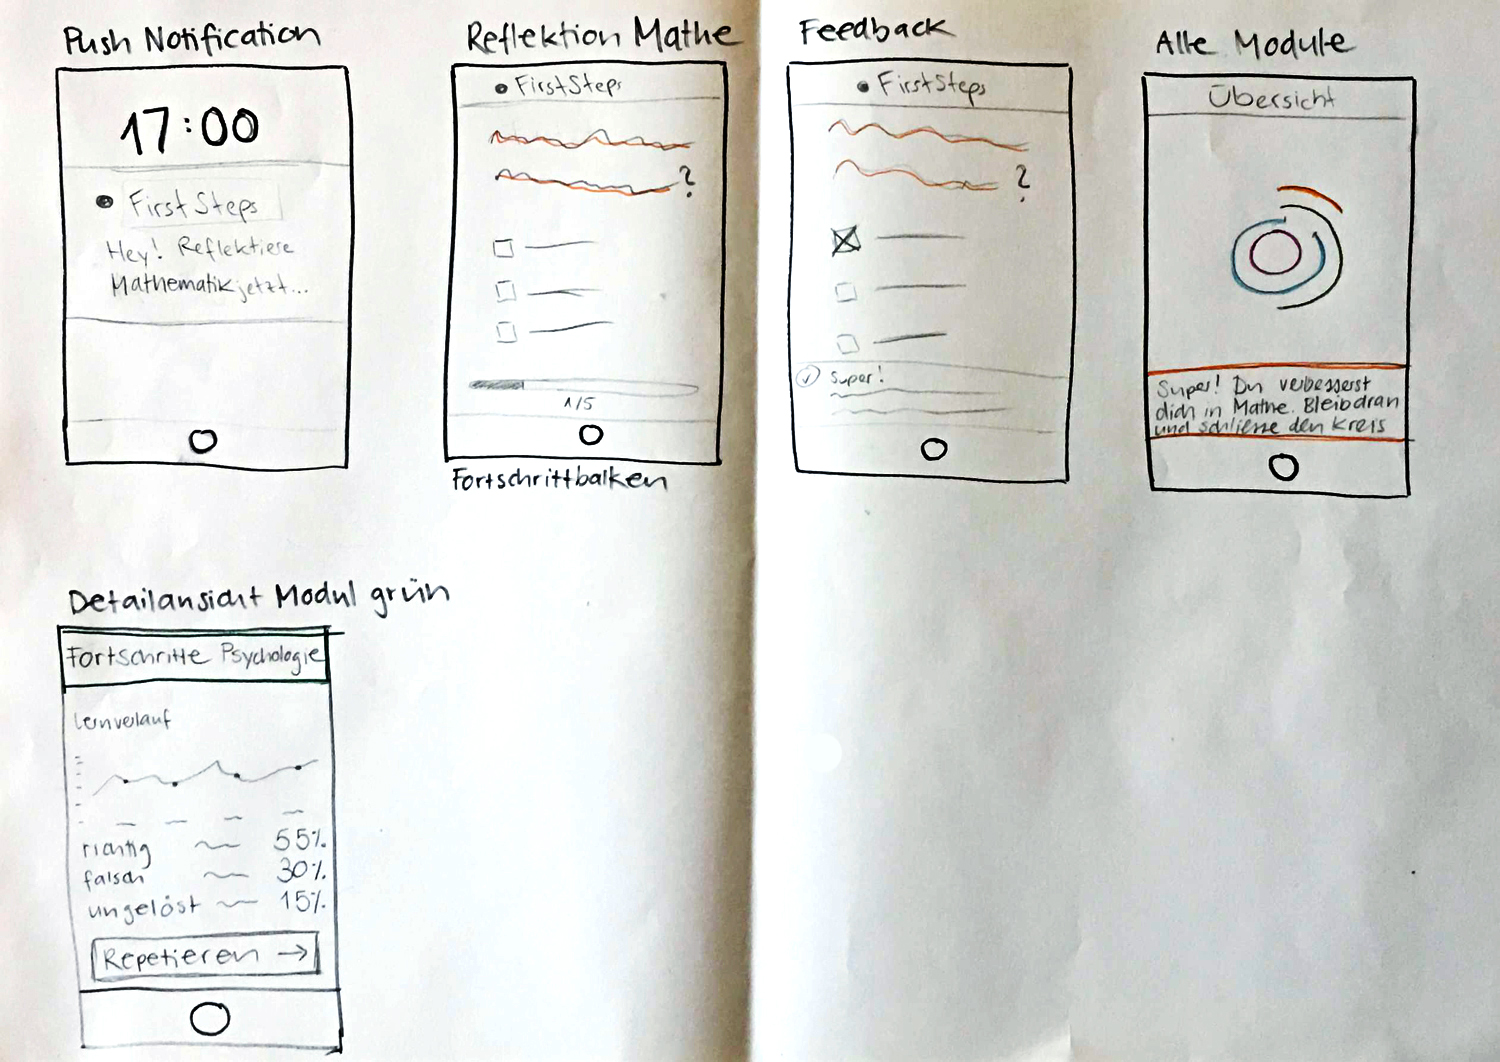 Push Notification
17:00
First Steps
Hey! Reflektiere
Mathematik jetzt...
Reflektion Mathe
First Steps
?
1/5
Fortschrittbalken
Feedback
First Steps
?
Super!
Alle Module
Übersicht
Super! Du verbesserst
dich in Mathe. Bleib dran
und schliesse den Kreis
Detailansicht Modul grün
Fortschritte Psychologie
Lernverlauf
richtig 55%
falsch 30%
ungelöst 15%
Repetieren →